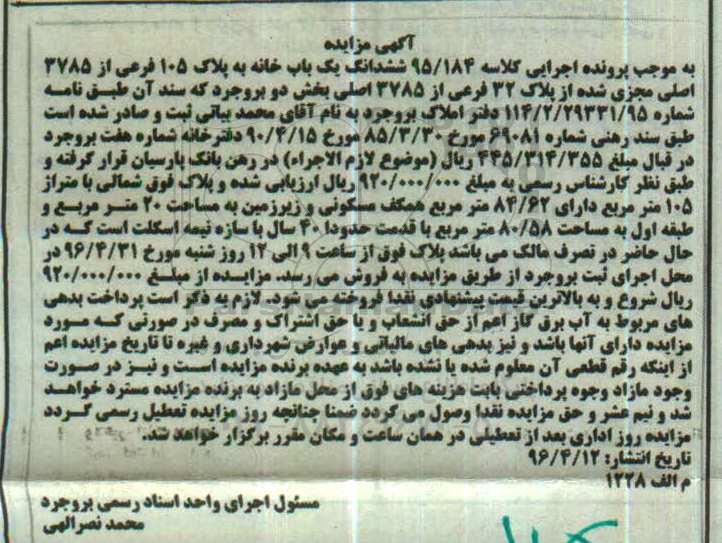 آگهی مزایده
به موجب پرونده اجرایی کلاسه ۹۵/۱۸۴ ششدانگ یک باب خانه به پلاک ۱۰۵ فرعی از ۳۷۸۵
اصلی مجزی شده از پلاک ۳۲ فرعی از ۳۷۸۵ اصلی بخش دو بروجرد که سند آن طبق نامه
شماره ۱۱۴/۲/۲۹۳۳۱/۹۵ دفتر املاک بروجرد به نام آقای محمد بیاتی ثبت و صادر شده است
طبق سند رهنی شماره ۶۹۰۸۱ مورخ ۸۵/۳/۳۰ مورخ ۹۰/۴/۱۵ دفترخانه شماره هفت بروجرد
در قبال مبلغ ۴۴۵/۳۱۴/۳۵۵ ریال (موضوع لازم الاجراء) در رهن بانک پارسیان قرار گرفته و
طبق نظر کارشناس رسمی به مبلغ ۹۲۰/۰۰۰/۰۰۰ ریال ارزیابی شده و پلاک فوق شمالی با متراژ
۱۰۵ متر مربع دارای ۸۴/۶۲ متر مربع همکف مسکونی و زیرزمین به مساحت ۲۰ متر مربع و
طبقه اول به مساحت ۸۰/۵۸ متر مربع با قدمت حدودا ۴۰ سال با سازه نیمه اسکلت است که در
حال حاضر در تصرف مالک می باشد پلاک فوق از ساعت ۹ الی ۱۲ روز شنبه مورخ ۹۶/۴/۳۱ در
محل اجرای ثبت بروجرد از طریق مزایده به فروش می رسد. مزایده از مبلغ ۹۲۰/۰۰۰/۰۰۰
ریال شروع و به بالاترین قیمت پیشنهادی نقدا فروخته می شود. لازم به ذکر است پرداخت بدهی
های مربوط به آب برق گاز اعم از حق انشعاب و یا حق اشتراک و مصرف در صورتی که مورد
مزایده دارای آنها باشد و نیز بدهی های مالیاتی و عوارض شهرداری و غیره تا تاریخ مزایده اعم
از اینکه رقم قطعی آن معلوم شده یا نشده باشد به عهده برنده مزایده است و نیز در صورت
وجود مازاد وجوه پرداختی بابت هزینه های فوق از محل مازاد به برنده مزایده مسترد خواهد
شد و نیم عشر و حق مزایده نقدا وصول می گردد ضمنا چنانچه روز مزایده تعطیل رسمی گردد
مزایده روز اداری بعد از تعطیلی در همان ساعت و مکان مقرر برگزار خواهد شد.
تاریخ انتشار: ۹۶/۴/۱۲
م الف ۱۲۲۸
مسئول اجرای واحد اسناد رسمی بروجرد
محمد نصرالهی